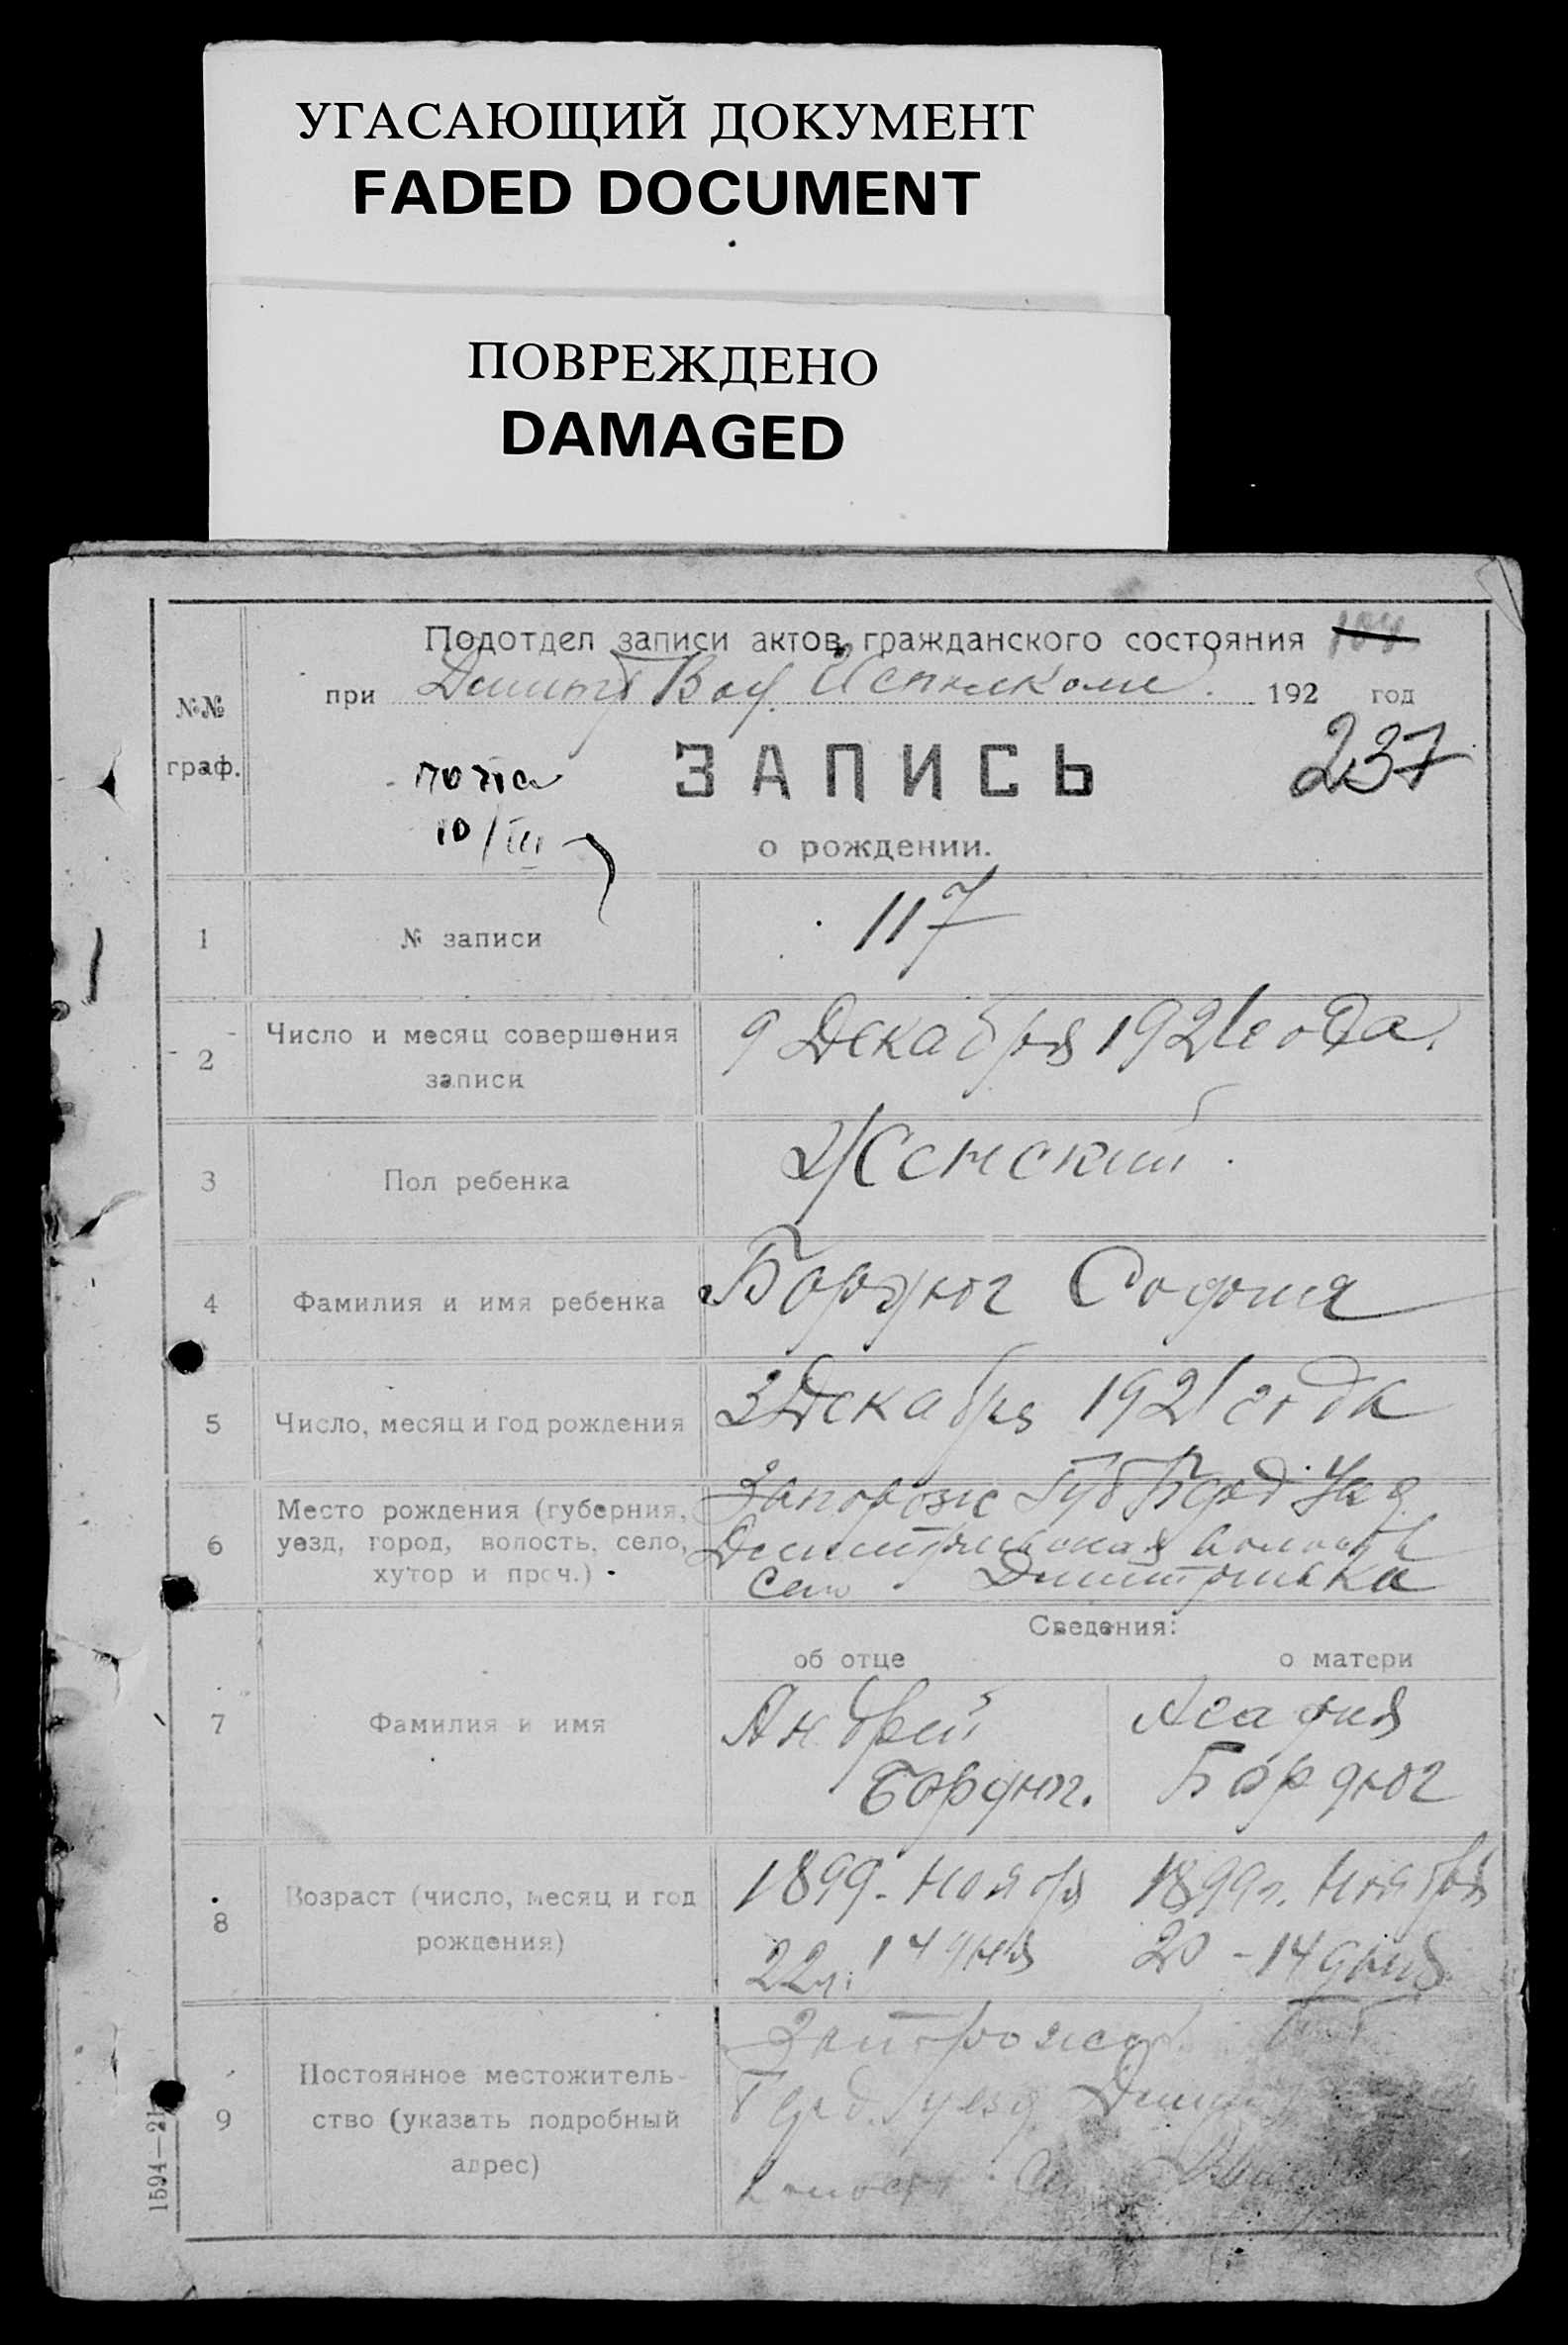 УГАСАЮЩИЙ ДОКУМЕНТ
FADED DOCUMENT
ПОВРЕЖДЕНО
DAMAGED
Подотдел записи актов гражданского состояния
№№
граф.
при Вол. Исполкоме. 192 год
ЗАПИСЬ
237
10/III
о рождении.
1 № записи 117
2 Число и месяц совершения записи 9 Декабря 1921 года.
3 Пол ребенка Женский
4 Фамилия и имя ребенка Бордюг София
5 Число, месяц и год рождения 3 Декабря 1921 года
6 Место рождения (губерния, уезд, город, волость, село, хутор и проч.)
Запорож Губ Берд Уез
волость
село
Сведения:
об отце о матери
7 Фамилия и имя
Андрей Агафия
Бордюг. Бордюг
8 Возраст (число, месяц и год рождения)
1899. Ноября 1899г. Ноября
22 14 дня 20 - 14 дня
9 Постоянное местожительство (указать подробный адрес)
Берд. уезд
1594—21